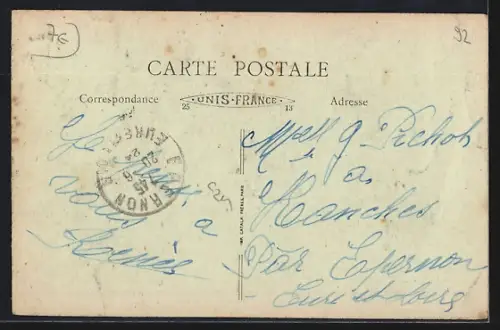 7€
92
CARTE POSTALE
Correspondance
25 UNIS-FRANCE 13
Adresse
Je
vous à
Mell g. Pichot
a
Hanches
Par Epernon
Eure et Loir
IMP. CATALA FRÈRES, PARIS